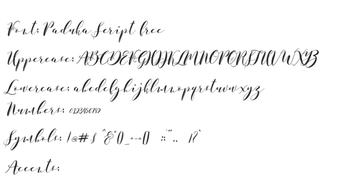 Font: Paduka Script free
Uppercase: ABCDEFGHIJKLMNOPQRSTUVWXYZ
Lowercase: abcdefghijklmnopqrstuvwxyz
Numbers: 0123456789
Symbols:
Accents: